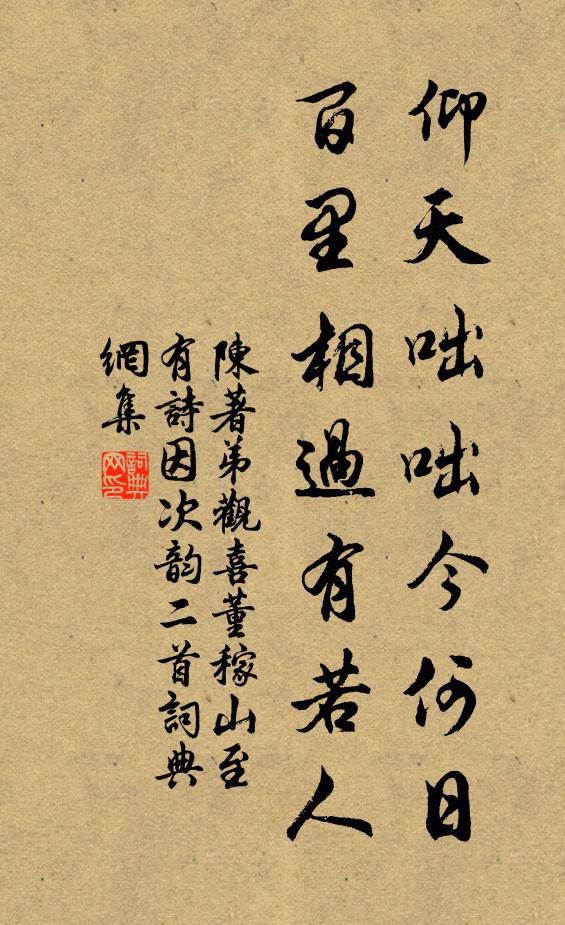 仰天咄咄今何日
百里相過有若人
陳著弟觀喜董稼山至
有詩因次韵二首詞典
網集
詞典網印